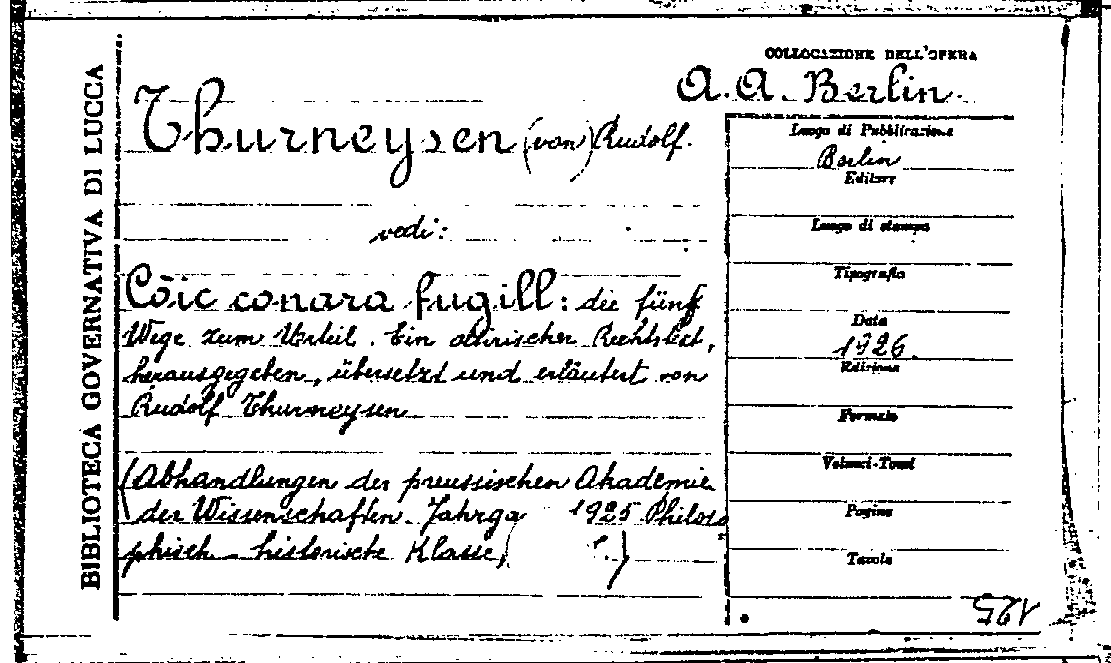 BIBLIOTECA GOVERNATIVA DI LUCCA
COLLOCAZIONE DELL'OPERA
A. A. Berlin.
Thurneysen (von) Rudolf.
vedi:
Còic conara fugill: die fünf
Wege zum Urteil. Ein altirischer Rechtstext,
herausgegeben, übersetzt und erläutert von
Rudolf Thurneysen
(Abhandlungen der preussischen Akademie
der Wissenschaften. Jahrga 1925 Philoso
phisch-historische Klasse,
Luogo di Pubblicazione
Berlin
Editore
Luogo di stampa
Tipografia
Data
1926.
Edizione
Formato
Volumi-Tomi
Pagine
Tavole
125